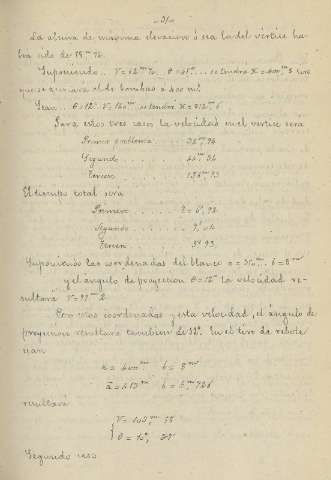 -31-
La altura de maxima elevacion ó sea la del vértice ha-
bra sido de 79,m 76
Suponiendo.. V = 62m 70 θ = 61° ... se tendra X = 400,m 5 tiro
que se aplicará al de bombas a 400 mt
Sean.. θ = 12° V = 140m se tendrá X = 812m 6
Para estos tres casos la velocidad en el vertice será
Primer problema ....... 38m,96
Segundo .......
Tercero ....... 136m,93
El tiempo total será
Primero ....... t =
Segundo .......
Tercero ....... 93
Suponiendo las coordenadas del blanco b = 8m
y el angulo de proyeccion θ = 12° la velocidad re-
sultará V = 99m 2
Con estas coordenadas y esta velocidad, el ángulo de
proyeccion resultara tambien de 12°. En el tiro de rebote
sean
a = 400m b = 8m
b = 6,m 726
resultará
V = 103,m 78
θ = 12°,
Segundo caso